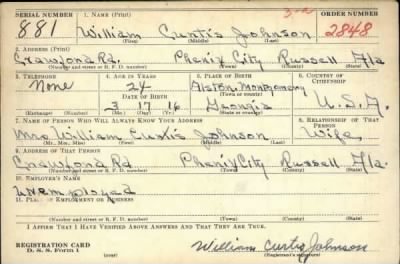 SERIAL NUMBER 1. NAME (Print) ORDER NUMBER
881 William Curtis Johnson 2848
(First) (Middle) (Last)
2. ADDRESS (Print)
Crawford Rd. Phenix City Russell Ala
(Number and street or R. F. D. number) (Town) (County) (State)
3. TELEPHONE 4. AGE IN YEARS 5. PLACE OF BIRTH 6. COUNTRY OF CITIZENSHIP
None 24 Alston, Montgomery
DATE OF BIRTH (Town or county)
3 17 16 Georgia U.S.A.
(Exchange) (Number) (Mo.) (Day) (Yr.) (State or country)
7. NAME OF PERSON WHO WILL ALWAYS KNOW YOUR ADDRESS 8. RELATIONSHIP OF THAT PERSON
Mrs William Curtis Johnson Wife
(Mr., Mrs., Miss) (First) (Middle) (Last)
9. ADDRESS OF THAT PERSON
Crawford Rd Phenix City Russell Ala.
(Number and street or R. F. D. number) (Town) (County) (State)
10. EMPLOYER'S NAME
Unemployed
11. PLACE OF EMPLOYMENT OR BUSINESS
(Number and street or R. F. D. number) (Town) (County) (State)
I AFFIRM THAT I HAVE VERIFIED ABOVE ANSWERS AND THAT THEY ARE TRUE.
REGISTRATION CARD
D. S. S. Form 1 William Curtis Johnson
(over) (Registrant's signature)